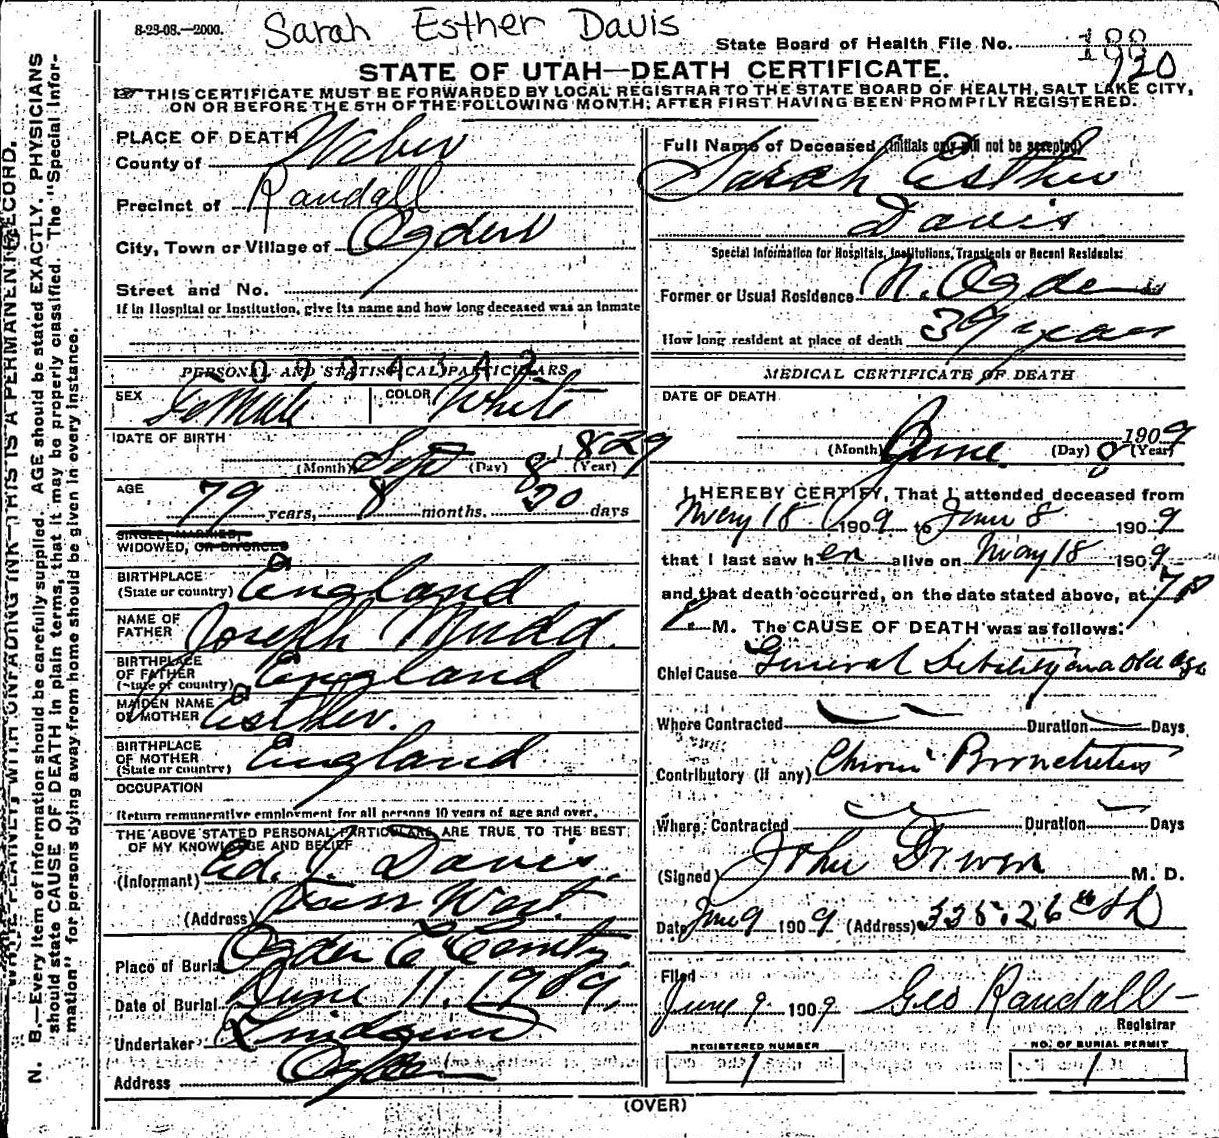 8-23-08.—2000.
Sarah Esther Davis
State Board of Health File No.
120
STATE OF UTAH—DEATH CERTIFICATE.
THIS CERTIFICATE MUST BE FORWARDED BY LOCAL REGISTRAR TO THE STATE BOARD OF HEALTH, SALT LAKE CITY,
ON OR BEFORE THE 5TH OF THE FOLLOWING MONTH; AFTER FIRST HAVING BEEN PROMPTLY REGISTERED.
N. B.—Every item of information should be carefully supplied. AGE should be stated EXACTLY. PHYSICIANS
should state CAUSE OF DEATH in plain terms, that it may be properly classified. The "Special Infor-
mation" for persons dying away from home should be given in every instance.
PLACE OF DEATH
County of Weber
Precinct of Randall
City, Town or Village of Ogden
Street and No.
If in Hospital or Institution, give its name and how long deceased was an inmate
PERSONAL AND STATISTICAL PARTICULARS
SEX Female COLOR White
DATE OF BIRTH
(Month) Sept (Day) 8 1829 (Year)
AGE
79 years, 8 months. 20 days
SINGLE, MARRIED,
WIDOWED, OR DIVORCED
BIRTHPLACE
(State or country) England
NAME OF
FATHER Joseph Mudd
BIRTHPLACE
OF FATHER
(State or country) England
MAIDEN NAME
OF MOTHER Esther.
BIRTHPLACE
OF MOTHER
(State or country) England
OCCUPATION
Return remunerative employment for all persons 10 years of age and over.
THE ABOVE STATED PERSONAL PARTICULARS ARE TRUE TO THE BEST
OF MY KNOWLEDGE AND BELIEF
(Informant) Ed. J. Davis.
(Address) Farr West.
Place of Burial Ogden
Date of Burial June 11, 1909,
Undertaker Lindquist
Address Ogden
Full Name of Deceased (Initials only will not be accepted)
Sarah Esther
Davis
Special Information for Hospitals, Institutions, Transients or Recent Residents:
Former or Usual Residence N. Ogden
How long resident at place of death 39 years
MEDICAL CERTIFICATE OF DEATH
DATE OF DEATH
(Month) June (Day) 8 1909 (Year)
I HEREBY CERTIFY, That I attended deceased from
May 18 1909 to June 8 1909
that I last saw her alive on May 18 1909
and that death occurred, on the date stated above, at 7 P
M. The CAUSE OF DEATH was as follows:
Chief Cause General Debility and Old Age
Where Contracted Duration Days
Contributory (if any) Chronic Bronchitis
Where Contracted Duration Days
(Signed) John M. D.
Date June 9 1909 (Address) 335. 26th St
Filed
June 9 1909 Geo Randall
Registrar
REGISTERED NUMBER
1
NO. OF BURIAL PERMIT
1
(OVER)